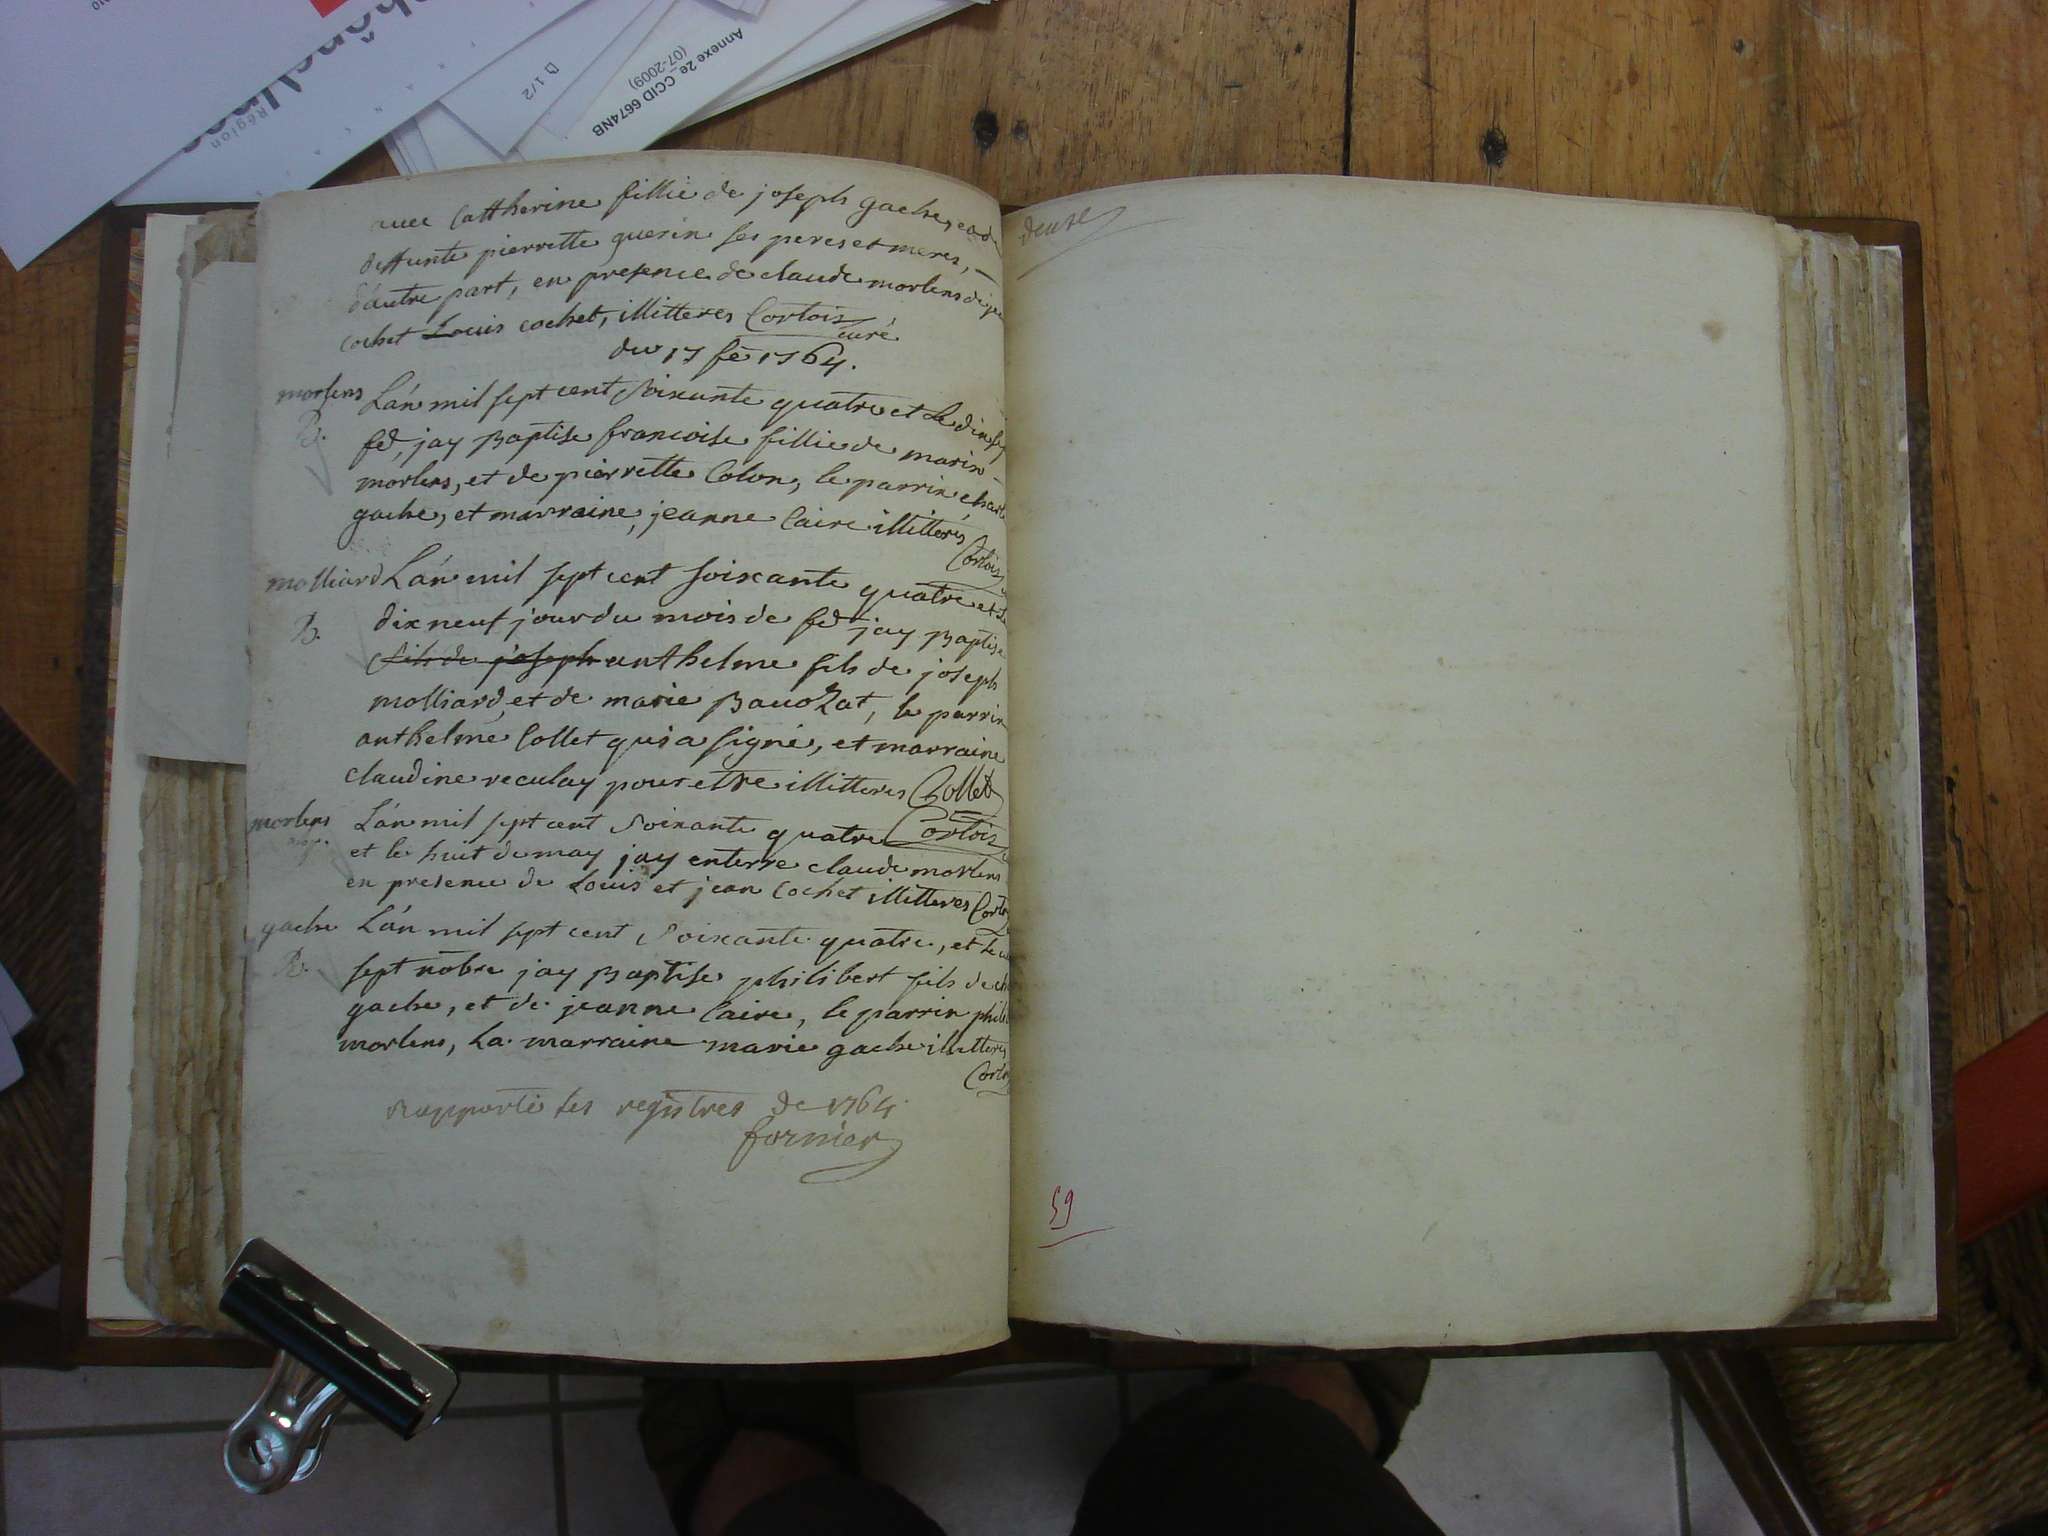 Région
D 1/2
Annexe 2e_CCID 6674NB
(07-2009)
avec Cattherine fillie de joseph gache, et de
deffunte pierrette guerin ses peres et meres,
d'autre part, en presence de claude morlens de
cochet Louis cochet, illitteres Cortois
curé
du 17 fe 1764.
morlens L'an mil sept cent soixante quatre et le dix sept
B. fed, jay Baptise francoise fillie de marin
morlens, et de pierrette Colon, le parrin charle
gache, et marraine, jeanne Caire illitterés
Cortois
molliard L'an mil sept cent soixante quatre et le
B. dix neuf jour du mois de fed jay Baptise
fils de joseph anthelme fils de joseph
molliard, et de marie Bavozat, le parrin
anthelme Collet qui a signé, et marraine
claudine reculay pour ettre illitteres Collet
morlens L'an mil sept cent soixante quatre Cortois
et le huit de may jay enterre claude morlens
en presence de Louis et jean Cochet illitteres Corto
gache L'an mil sept cent soixante quatre, et le
B. sept nobre jay Baptise philibert fils de ch
gache, et de jeanne Caire, le parrin phile
morlens, La marraine marie gache illitteres
Corto
Rapporté les registres de 1764
fornier
59